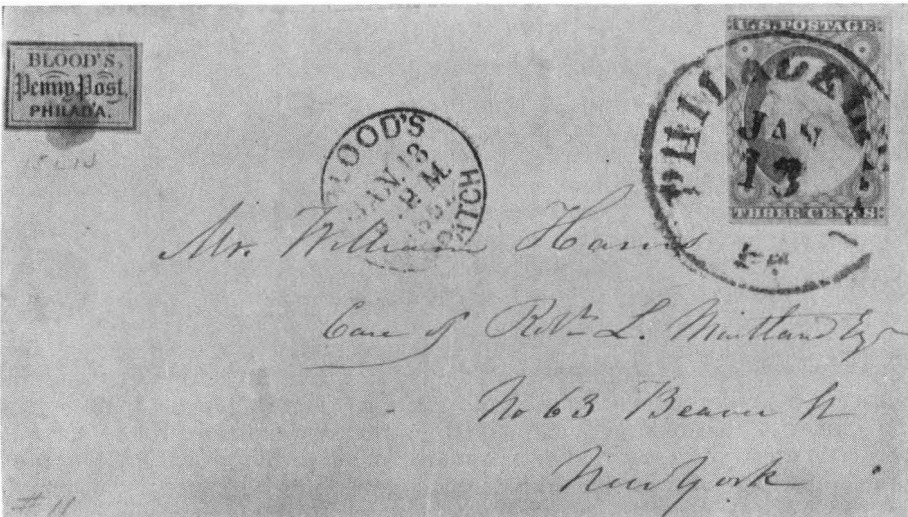 BLOOD'S
Penny Post,
PHILAD'A.
15L18
BLOOD'S
JAN. 13
P. M.
DISPATCH
U.S. POSTAGE
THREE CENTS
PHILADELPHIA
JAN
13
Pa
Mr. William Harris
Care of Robt. L. Maitland Esqr
No 63 Beaver St
New York
# 11